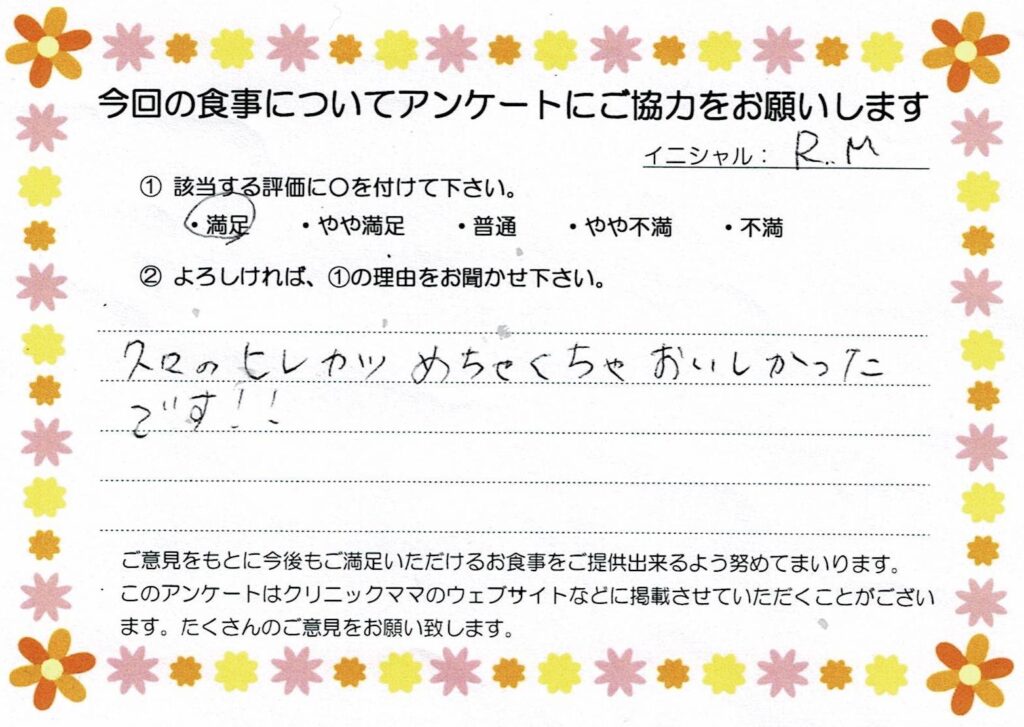 今回の食事についてアンケートにご協力をお願いします
イニシャル： R.M
① 該当する評価に〇を付けて下さい。
・満足 ・やや満足 ・普通 ・やや不満 ・不満
② よろしければ、①の理由をお聞かせ下さい。
のヒレカツ めちゃくちゃ おいしかった
です!!
ご意見をもとに今後もご満足いただけるお食事をご提供出来るよう努めてまいります。
このアンケートはクリニックママのウェブサイトなどに掲載させていただくことがござい
ます。たくさんのご意見をお願い致します。